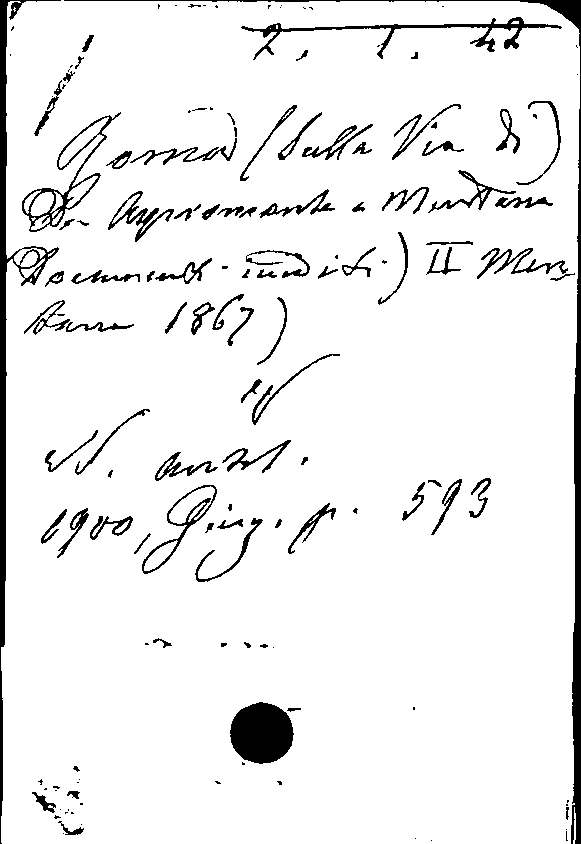 2. 1. 42
Roma (Sulla Via di)
Da Aspromonte a Mentana
Documenti inediti) II Men
tana 1867)
N. antol.
1900, Giug. p. 593